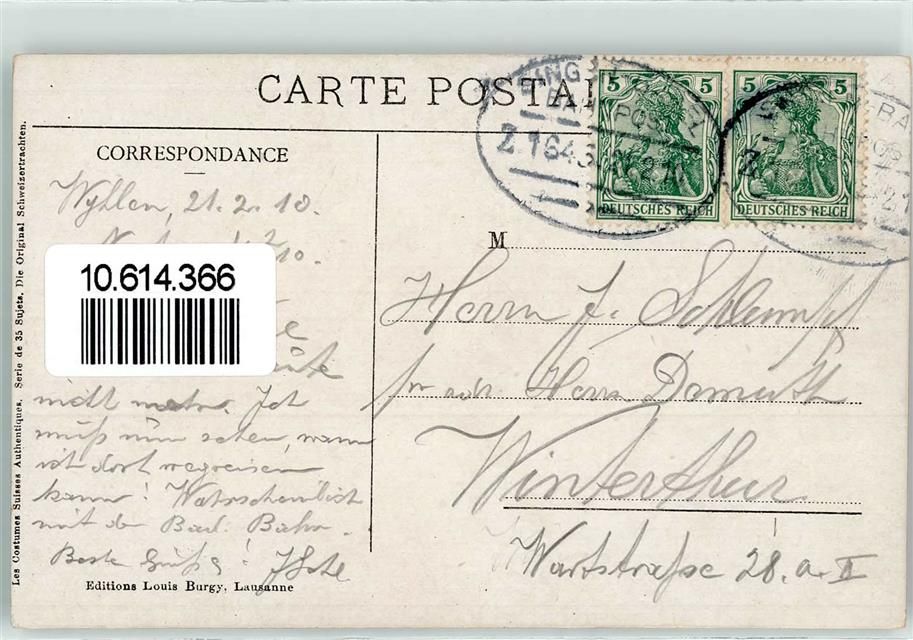 CARTE POSTA
5 5 5 5
DEUTSCHES REICH DEUTSCHES REICH
BAHNPOST
Z. 164
CORRESPONDANCE
Wyhlen, 21.2.10.
10.614.366
nicht mehr. Ich
muß nun sehen, wann
ich dort wegreisen
kann! Wahrscheinlich
mit der Bad. Bahn.
Beste Grüße!
M
Herrn J. Schlumpf
pr adr. Herrn Demuth
Winterthur
Wartstraße 28. a. II
Editions Louis Burgy, Lausanne
Les Costumes Suisses Authentiques. Serie de 35 Sujets. Die Original Schweizertrachten.